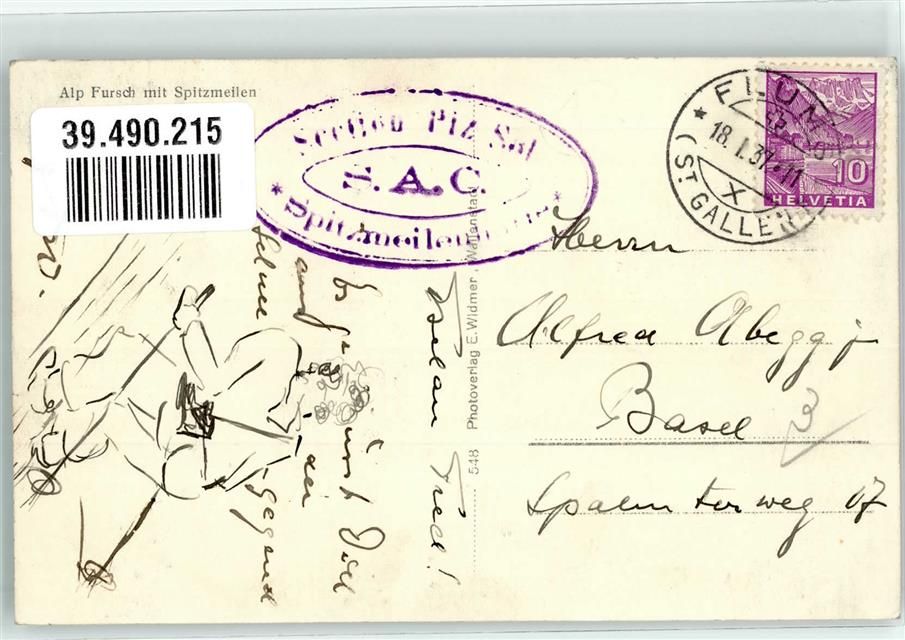 Alp Fursch mit Spitzmeilen
39.490.215
Section Piz Sol
S.A.C.
* Spitzmeilenhütte *
FLUMS
18.I.37.11
X
(ST. GALLEN)
10
HELVETIA
Herrn
Alfred Abegg jr
Basel 3
Spalentorweg 17
548 Photoverlag E. Widmer, Wallenstadt
Fred!
Es grüsst Dich
aus der Gegend